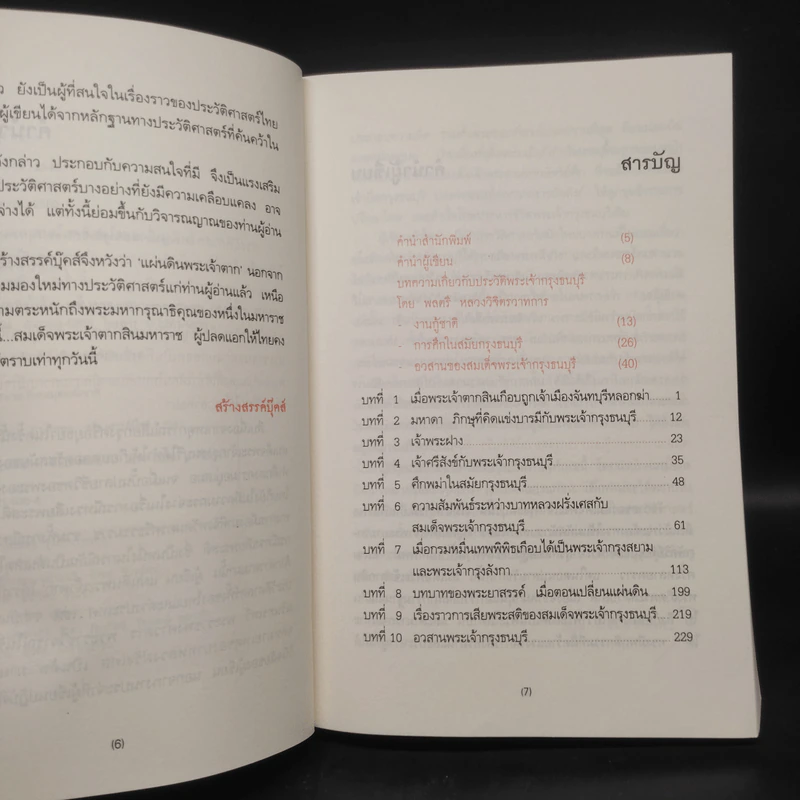 ยังเป็นผู้ที่สนใจในเรื่องราวของประวัติศาสตร์ไทย
ผู้เขียนได้จากหลักฐานทางประวัติศาสตร์ที่ค้นคว้าใน
ังกล่าว ประกอบกับความสนใจที่มี จึงเป็นแรงเสริม
ประวัติศาสตร์บางอย่างที่ยังมีความเคลือบแคลง อาจ
ง่างได้ แต่ทั้งนี้ย่อมขึ้นกับวิจารณญาณของท่านผู้อ่าน
ร้างสรรค์บุ๊คส์จึงหวังว่า 'แผ่นดินพระเจ้าตาก' นอกจาก
มมองใหม่ทางประวัติศาสตร์แก่ท่านผู้อ่านแล้ว เหนือ
ามตระหนักถึงพระมหากรุณาธิคุณของหนึ่งในมหาราช
นี้...สมเด็จพระเจ้าตากสินมหาราช ผู้ปลดแอกให้ไทยคง
ตราบเท่าทุกวันนี้
สร้างสรรค์บุ๊คส์
(6)
สารบัญ
คำนำสำนักพิมพ์ (5)
คำนำผู้เขียน (8)
บทความเกี่ยวกับประวัติพระเจ้ากรุงธนบุรี
โดย พลตรี หลวงวิจิตรวาทการ
- งานกู้ชาติ (13)
- การศึกในสมัยกรุงธนบุรี (26)
- อวสานของสมเด็จพระเจ้ากรุงธนบุรี (40)
บทที่ 1 เมื่อพระเจ้าตากสินเกือบถูกเจ้าเมืองจันทบุรีหลอกฆ่า 1
บทที่ 2 มหาดา ภิกษุที่คิดแข่งบารมีกับพระเจ้ากรุงธนบุรี 12
บทที่ 3 เจ้าพระฝาง 23
บทที่ 4 เจ้าศรีสังข์กับพระเจ้ากรุงธนบุรี 35
บทที่ 5 ศึกพม่าในสมัยกรุงธนบุรี 48
บทที่ 6 ความสัมพันธ์ระหว่างบาทหลวงฝรั่งเศสกับ
สมเด็จพระเจ้ากรุงธนบุรี 61
บทที่ 7 เมื่อกรมหมื่นเทพพิพิธเกือบได้เป็นพระเจ้ากรุงสยาม
และพระเจ้ากรุงลังกา 113
บทที่ 8 บทบาทของพระยาสรรค์ เมื่อตอนเปลี่ยนแผ่นดิน 199
บทที่ 9 เรื่องราวการเสียพระสติของสมเด็จพระเจ้ากรุงธนบุรี 219
บทที่ 10 อวสานพระเจ้ากรุงธนบุรี 229
(7)